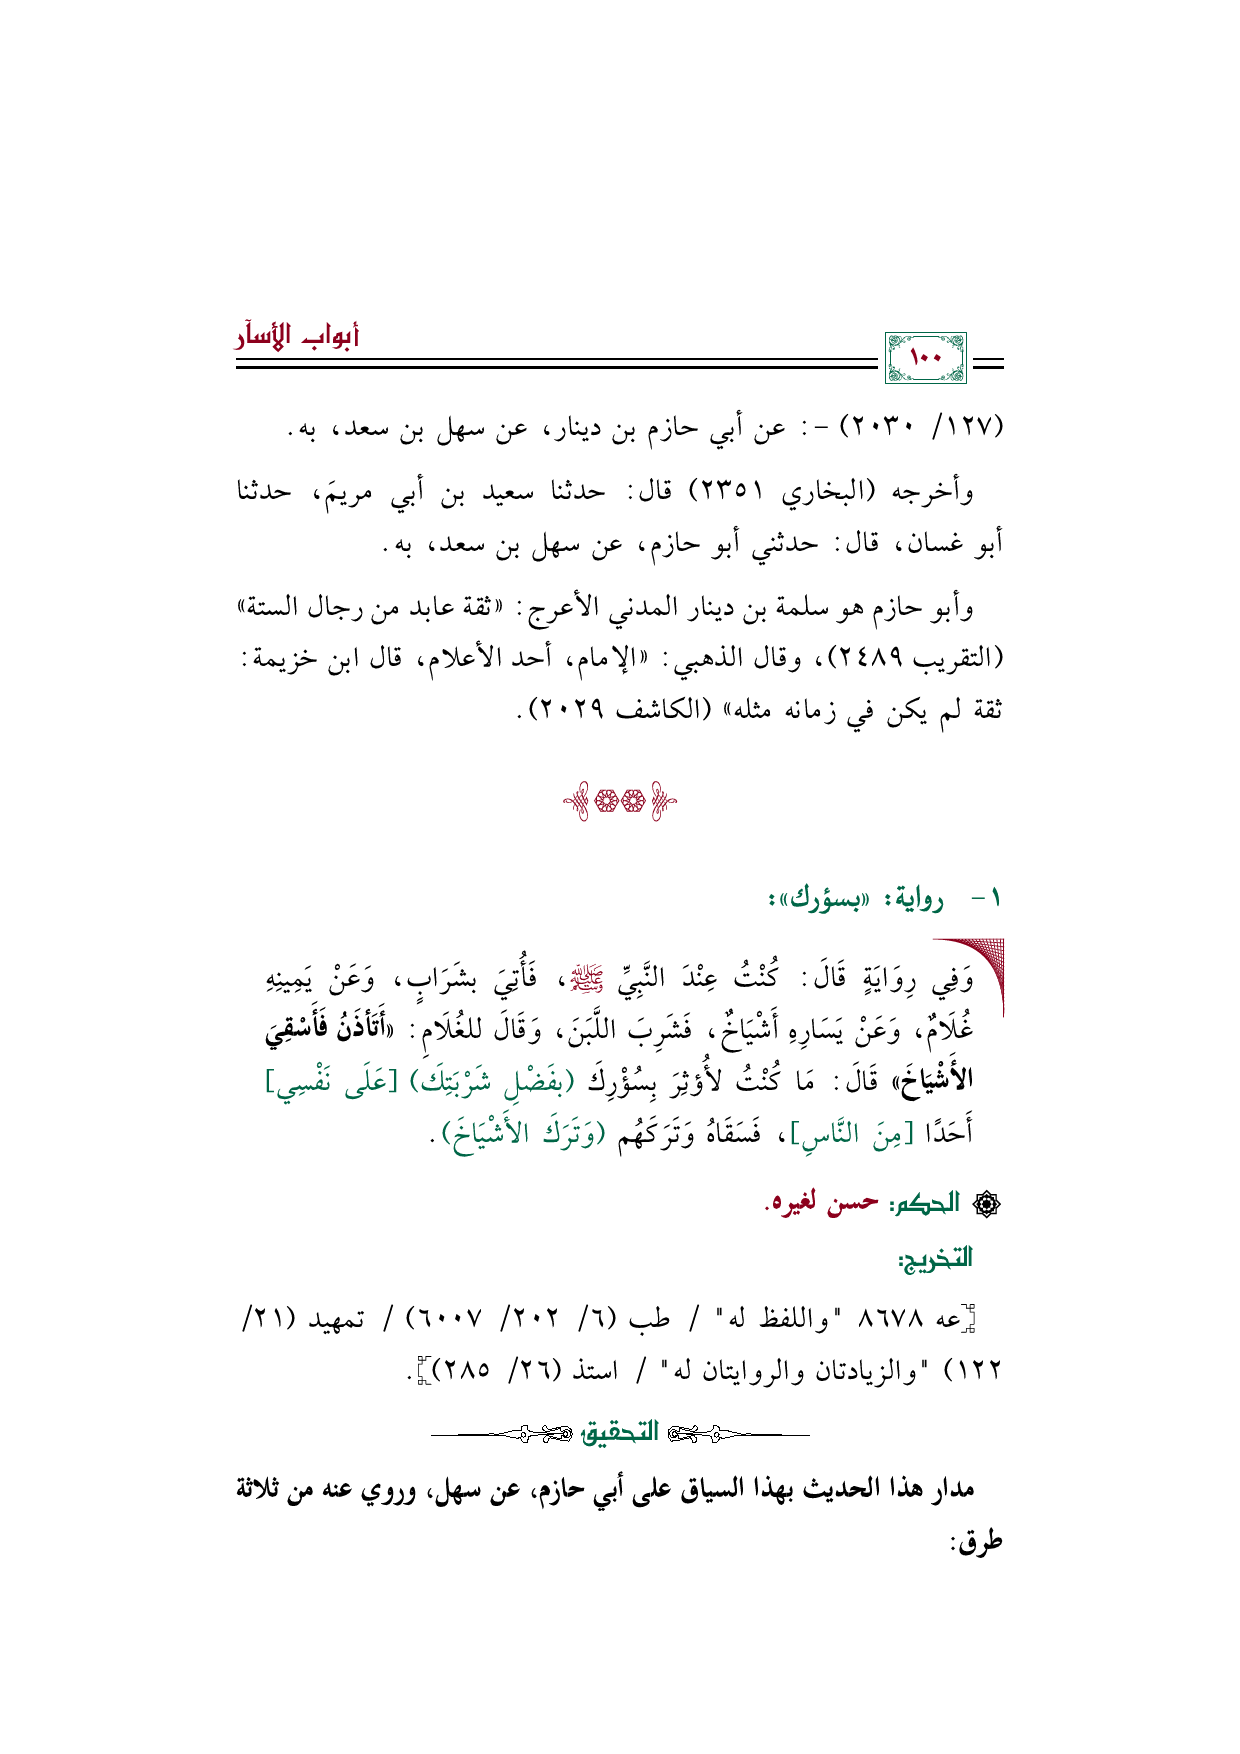 أبواب الأسآر
١٠٠
(١٢٧/ ٢٠٣٠) -: عن أبي حازم بن دينار، عن سهل بن سعد، به.
وأخرجه (البخاري ٢٣٥١) قال: حدثنا سعيد بن أبي مريمَ، حدثنا
أبو غسان، قال: حدثني أبو حازم، عن سهل بن سعد، به.
وأبو حازم هو سلمة بن دينار المدني الأعرج: «ثقة عابد من رجال الستة»
(التقريب ٢٤٨٩)، وقال الذهبي: «الإمام، أحد الأعلام، قال ابن خزيمة:
ثقة لم يكن في زمانه مثله» (الكاشف ٢٠٢٩).
١- رواية: «بسؤرك»:
وَفِي رِوَايَةٍ قَالَ: كُنْتُ عِنْدَ النَّبِيِّ ﷺ، فَأُتِيَ بشَرَابٍ، وَعَنْ يَمِينِهِ
غُلَامٌ، وَعَنْ يَسَارِهِ أَشْيَاخٌ، فَشَرِبَ اللَّبَنَ، وَقَالَ للغُلَامِ: «أَتَأذَنُ فَأَسْقِيَ
الأَشْيَاخَ» قَالَ: مَا كُنْتُ لأُؤثِرَ بِسُؤْرِكَ (بفَضْلِ شَرْبَتِكَ) [عَلَى نَفْسِي]
أَحَدًا [مِنَ النَّاسِ]، فَسَقَاهُ وَتَرَكَهُم (وَتَرَكَ الأَشْيَاخَ).
الحكم: حسن لغيره.
التخريج:
[عه ٨٦٧٨ "واللفظ له" / طب (٦/ ٢٠٢/ ٦٠٠٧) / تمهيد (٢١/
١٢٢) "والزيادتان والروايتان له" / استذ (٢٦/ ٢٨٥)].
التحقيق
مدار هذا الحديث بهذا السياق على أبي حازم، عن سهل، وروي عنه من ثلاثة
طرق: